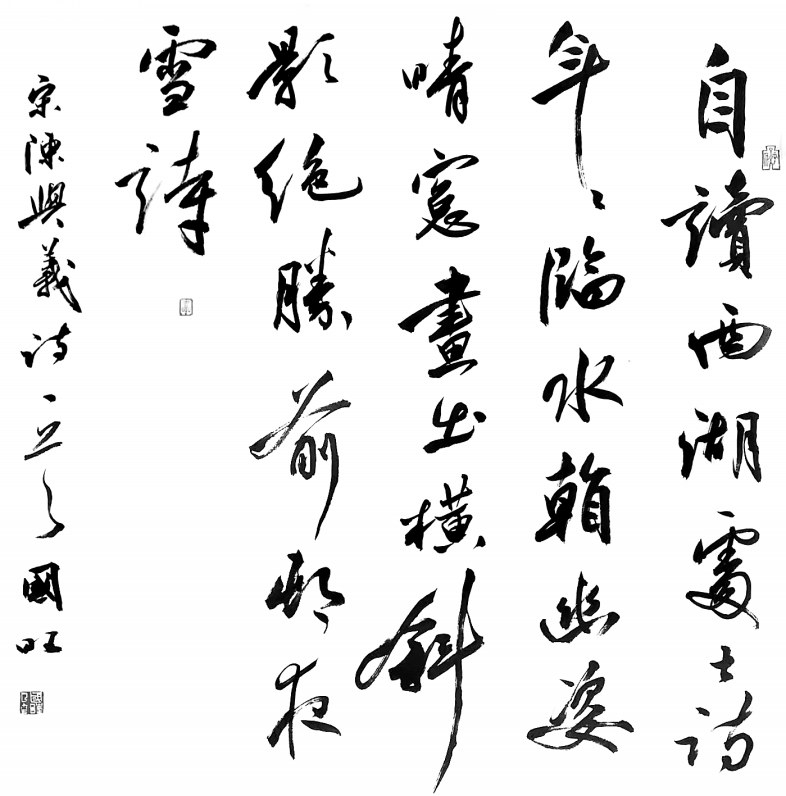 自讀西湖處士詩
年〻臨水看幽姿
晴窻畫出橫斜
影絕勝前邨夜
雪詩
宋陳與義詩 國旺